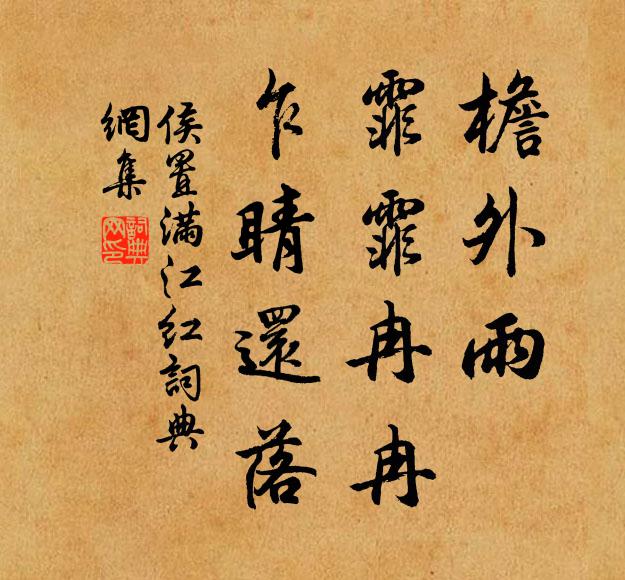 檐外雨
霏霏冉冉
乍晴還落
侯置滿江红詞典
網集
詞典
网印